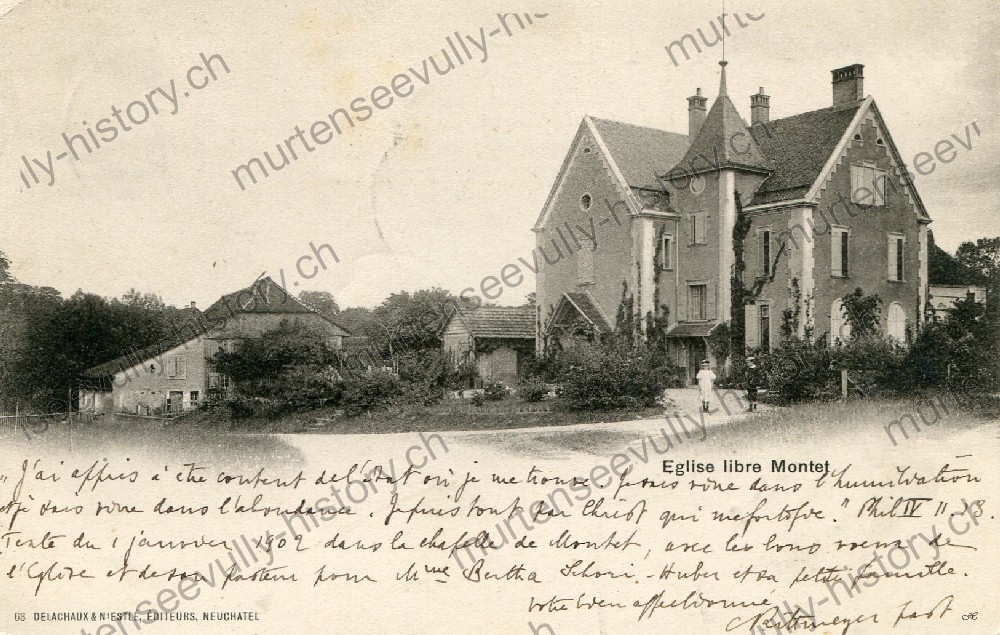 Eglise libre Montet
"J'ai appris à être content de l'état où je me trouve. Je sais vivre dans l'humiliation
et je sais vivre dans l'abondance. Je puis tout par Christ qui me fortifie." Phil IV 11. 13.
Texte du 1 janvier 1902 dans la chapelle de Montet, avec les bons voeux de
l'Eglise et de son Pasteur pour Mme Bertha Schori-Huber et sa petite famille.
Votre bien affectionné
past
68 DELACHAUX & NIESTLÉ, ÉDITEURS, NEUCHATEL
murtenseevully-history.ch